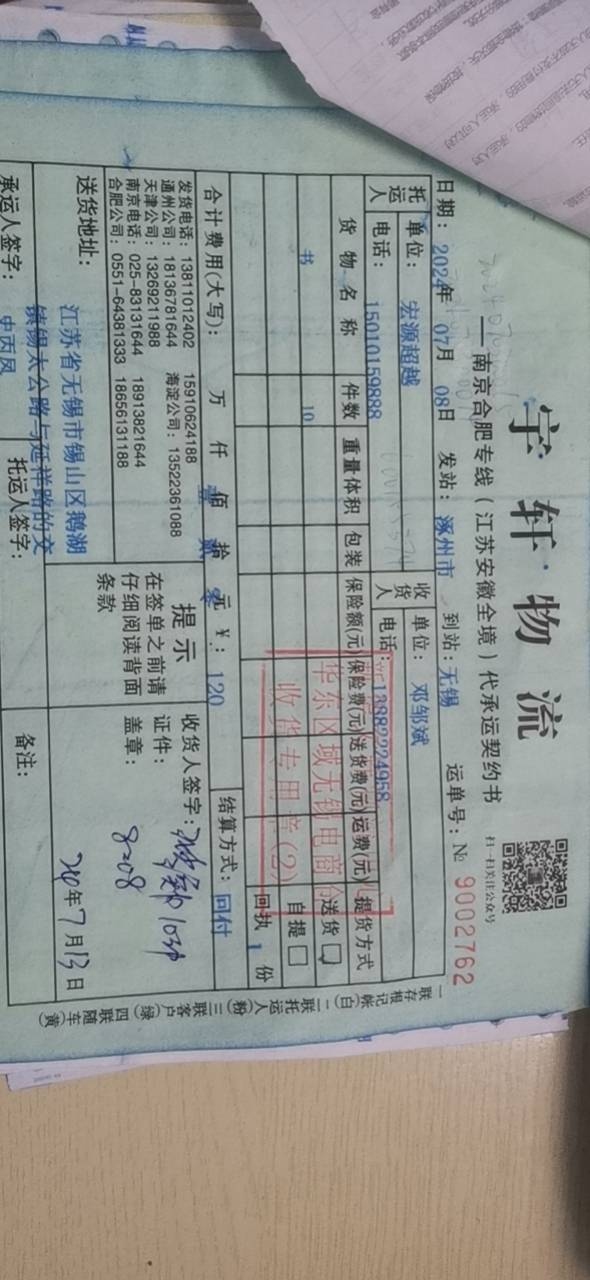 宇轩·物流
——南京合肥专线(江苏安徽全境)代承运契约书
扫一扫关注公众号
日期: 2024年 07月 08日 发站: 涿州市 到站: 无锡 运单号: № 9002762
托运人 单位: 宏源超越 收货人 单位: 邓邹斌
电话: 15010159888 电话: 13882224958
货物名称 件数 重量体积 包装 保险额(元) 保险费(元) 送货费(元) 运费(元) 提货方式
书 10 送货☑
自提□
回执 1 份
华东区域无锡电商
收货专用章(2)
合计费用(大写): 万 仟 佰 拾 元 ¥: 120 结算方式: 回付
发货电话: 13811012402 15910624188
通州公司: 18136781644 海淀公司: 13522361088
天津公司: 13269211988
南京电话: 025-83131644 18913821644
合肥公司: 0551-64381333 18656131188
提示
在签单之前请
仔细阅读背面
条款
收货人签字:
证件:
盖章: 8208
年7月13日
送货地址: 江苏省无锡市锡山区鹅湖
镇锡太公路与延祥路的交
承运人签字: 史丙凤 托运人签字: 备注:
一联存根记帐(白) 二联托运人(粉) 三联客户(绿) 四联随车(黄)